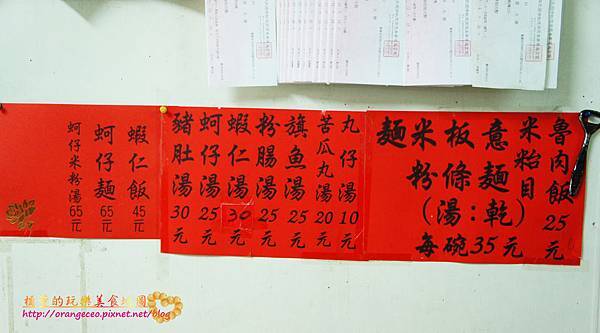 魯肉飯25元
米粘目
意麵
板條
米粉
麵
(湯:乾)
每碗35元
丸仔湯10元
苦瓜丸湯20元
旗魚湯25元
粉腸湯25元
蝦仁湯30元
蚵仔湯25元
豬肚湯30元
蝦仁飯45元
蚵仔麵65元
蚵仔米粉湯65元
http://orangeceo.pixnet.net/blog